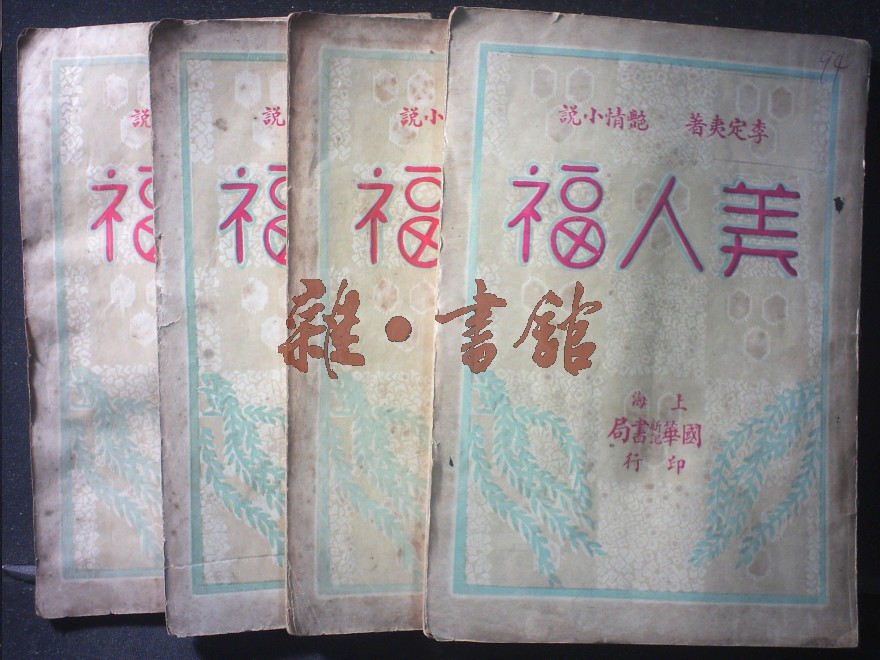 94
李定夷著 艷情小說
美人福
上海
國華新記書局
印行
小說
福
說
福
說
福
雜·書館